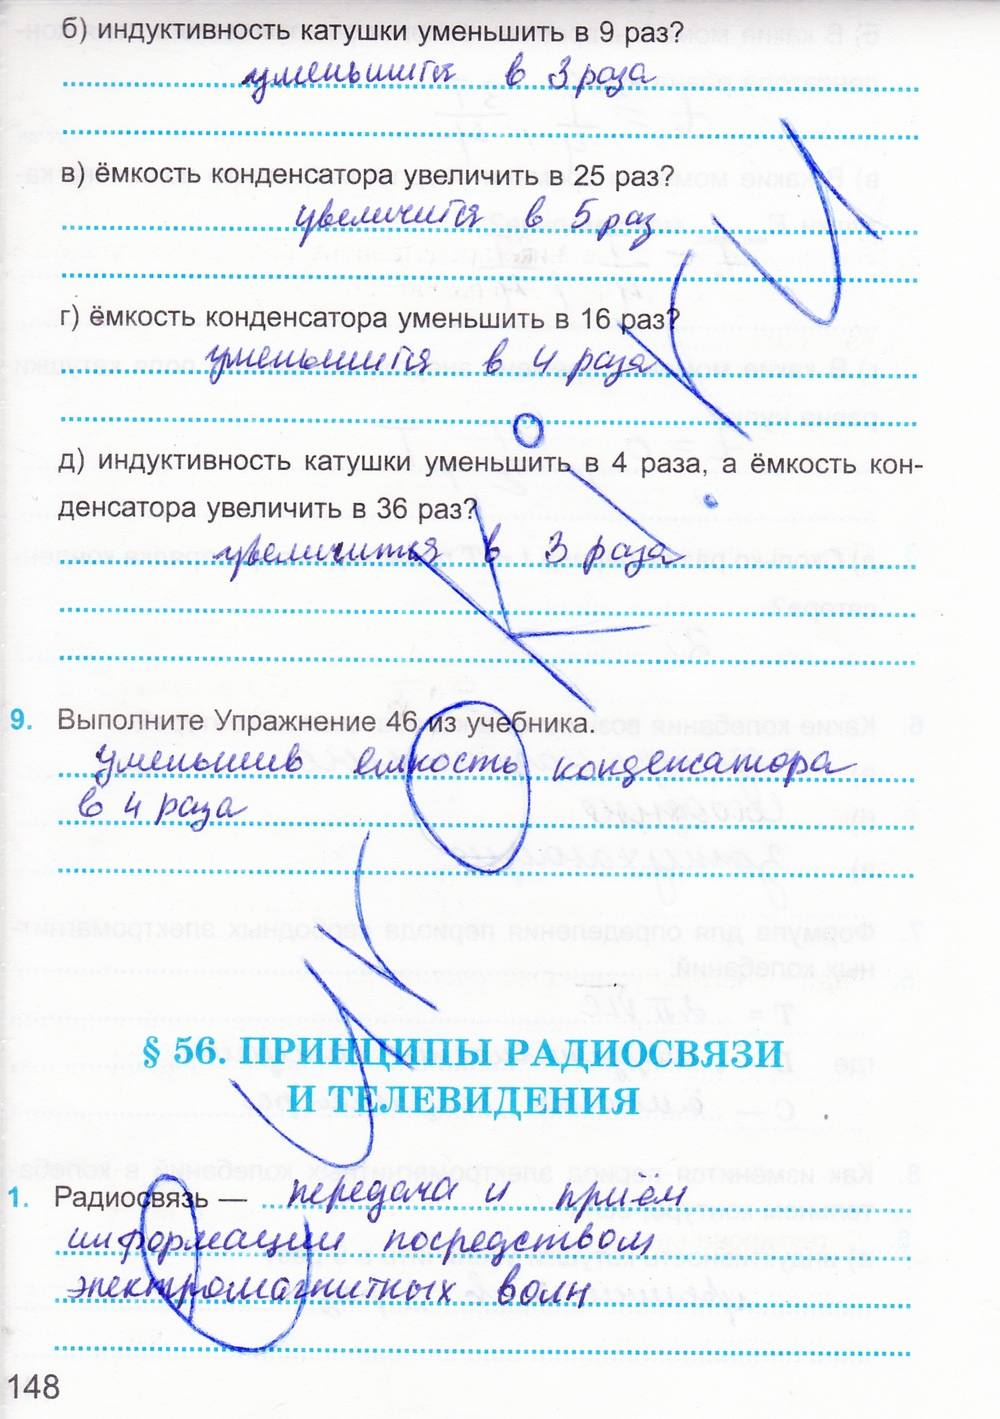 б) индуктивность катушки уменьшить в 9 раз?
уменьшится в 3 раза
в) ёмкость конденсатора увеличить в 25 раз?
увеличится в 5 раз
г) ёмкость конденсатора уменьшить в 16 раз?
уменьшится в 4 раза
д) индуктивность катушки уменьшить в 4 раза, а ёмкость кон-
денсатора увеличить в 36 раз?
увеличится в 3 раза
9. Выполните Упражнение 46 из учебника.
уменьшив емкость конденсатора
в 4 раза
§ 56. ПРИНЦИПЫ РАДИОСВЯЗИ
И ТЕЛЕВИДЕНИЯ
1. Радиосвязь — передача и приём
информации посредством
электромагнитных волн
148